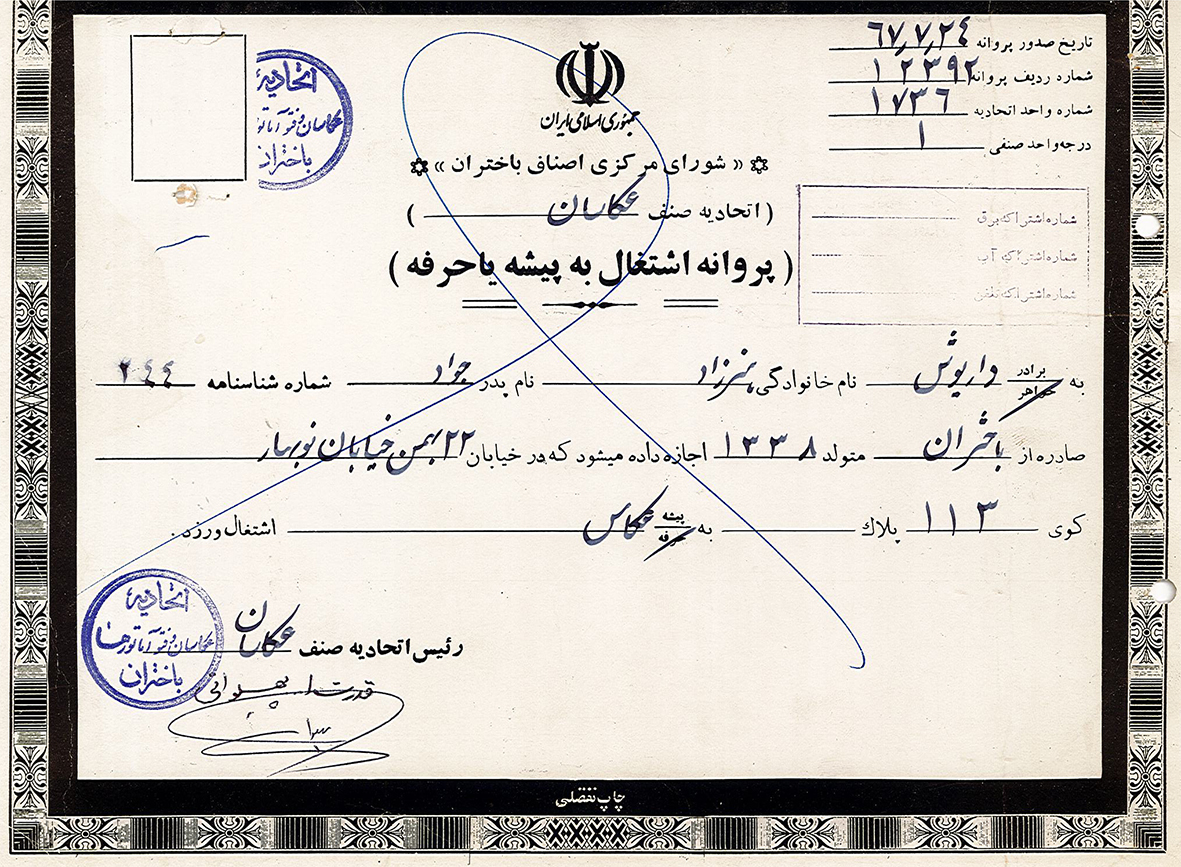 تاریخ صدور پروانه ٦٧٫٧٫٢٤
شماره ردیف پروانه ١٢٣٩٢
شماره واحد اتحادیه ١٧٣٦
درجه واحد صنفی ١
اتحادیه
عکاسان و فتوآماتورها
باختران
جمهوری اسلامی ایران
« شورای مرکزی اصناف باختران »
( اتحادیه صنف عکاسان )
( پروانه اشتغال به پیشه یا حرفه )
شماره اشتراک برق
شماره اشتراک آب
شماره اشتراک تلفن
به برادر خواهر داریوش نام خانوادگی نام پدر جواد شماره شناسنامه ٢٤٤
صادره از باختران متولد ١٣٣٨ اجازه داده میشود که در خیابان ٢٢ بهمن خیابان نوبهار
کوی ١١٣ پلاک به پیشه حرفه عکاس اشتغال ورزد.
رئیس اتحادیه صنف عکاسان
اتحادیه
عکاسان و فتوآماتورها
باختران
قدرت اله پهلوانی
چاپ تفضلی